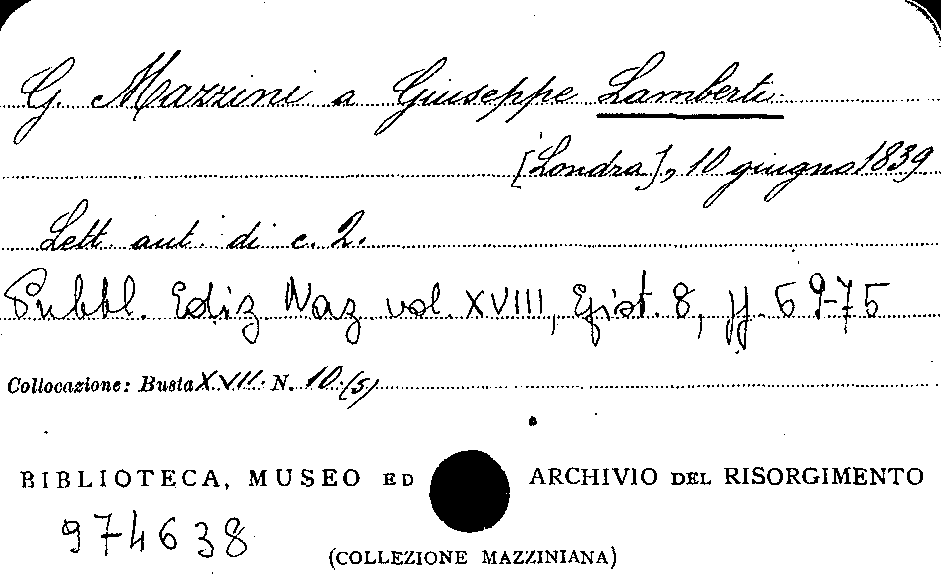 G. Mazzini a Giuseppe Lamberti.
[Londra], 10 giugno 1839
Lett. aut. di c. 2.
Pubbl. Ediz Naz vol. XVIII, Epist. 8, pp. 69-75
Collocazione: Busta XVII. N. 10.(5)
BIBLIOTECA, MUSEO ED ARCHIVIO DEL RISORGIMENTO
974638
(COLLEZIONE MAZZINIANA)